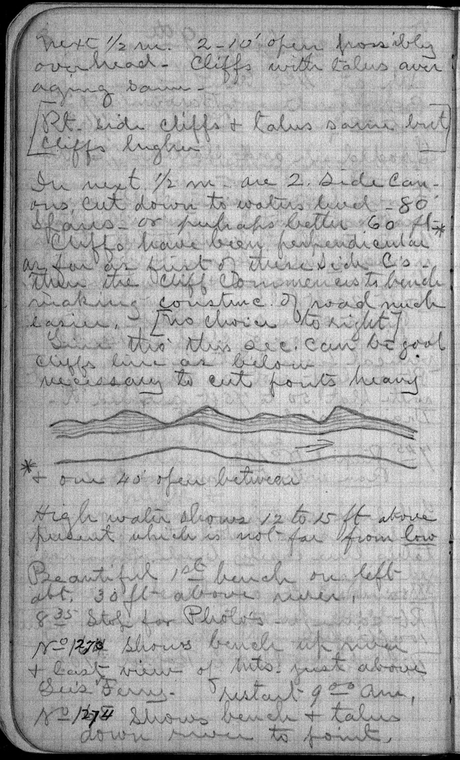 next 1/2 m. 2-10' open possibly
overhead - Cliffs with talus aver
aging same -
[Rt. side cliffs & talus same but
cliffs higher]
In next 1/2 m are 2 side can-
ons, cut down to waters level - 80'
spans - or perhaps better 60 ft *
Cliffs have been perpendicular
as far as first of these side C's -
then the Cliff Commences to bench
making construc. of road much
easier. - [no choice to right]
Line this sec. can be good
Cliffs line as below
necessary to cut points heavy
* & one 40' open between
High water shows 12 to 15 ft above
present which is not far from low
Beautiful 1st bench on left
abt. 30 ft above river.
8 35 Stop for Photo's -
No 1273 shows bench up river
& last view of mts. just above
Lee's Ferry. - restart 9 00 am,
No 1274 shows bench & talus
down river to point.